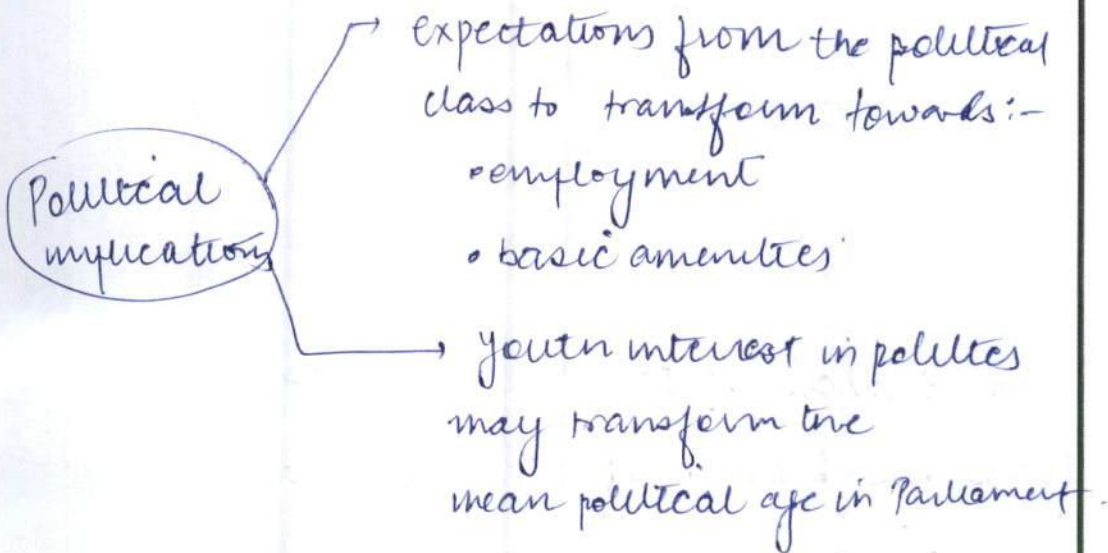 Political
implications
expectations from the political
class to transform towards:-
•employment
•basic amenities
youth interest in politics
may transform the
mean political age in Parliament.